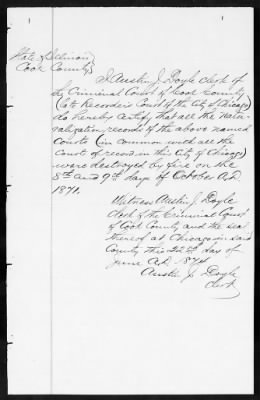 State of Illinois
Cook County
I Austin J. Doyle clerk of
the Criminal Court of Cook County
(late Recorder's Court of the City of Chicago)
do hereby certify that all the Natu-
ralization records of the above named
Courts (in common with all the
Courts of record in the City of Chicago)
were destroyed by fire on the
8th and 9th days of October A.D.
1871.
Witness Austin J. Doyle
clerk of the Criminal Court
of Cook County and the seal
thereof at Chicago in said
County this 22d day of
June A.D. 1874
Austin J. Doyle
Clerk